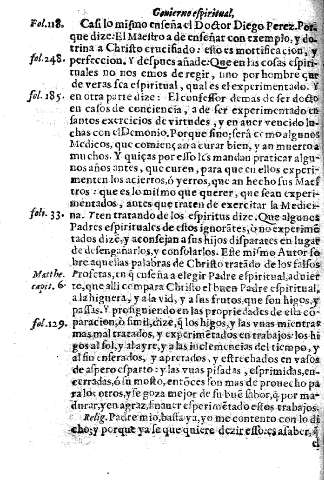 Gouierno espiritual,
Fol.118. Casi lo mismo enseña el Doctor Diego Perez. Por-
que dize: El Maestro a de enseñar con exemplo, y do-
trina a Christo crucifiado: esto es mortificacion, y
fol.248. perfeccion. Y despues añade: Que en las cosas espiri-
tuales no nos emos de regir, uno por hombre que
de veras sea espiritual, qual es el experimentado. Y
fol.185. en otra parte dize: El confessor demas de ser docto
en casos de conciencia, a de ser experimentado en
santos exercicios de virtudes, y en auer vencido lu-
chas con el Demonio. Porque sino; será como algunos
Medicos, que comiençan a curar bien, y an muerto a
muchos. Y quiças por esso les mandan praticar algu-
nos años antes, que curen, para que en ellos experi-
menten los aciertos, ó yerros, que an hecho sus Maes
tros: que es lo mismo que querer, que sean experi-
mentados, antes que traten de exercitar la Medici-
foli. 33. na. Y en tratando de los espiritus dize, Que algunos
Padres espirituales de estos ignorãtes, ò no experimẽ
tados dizẽ, y aconsejan a sus hijos disparates en lugar
de desengañarlos, y consolarlos. Este mismo Autor so
bre aquellas palabras de Christo tratãdo de los falsos
Matthe. Profetas, en q̃ enseña a elegir Padre espiritual, aduier
capit. 6. te, que alli compara Christo el buen Padre espiritual,
a la higuera, y a la vid, y a sus frutos, que son higos, y
passas. Y prosiguiendo en las propriedades de esta cõ-
fol.129. paracion, ò simil, dize, q̃ los higos, y las vuas mientras
mas mal tratados, y experimẽtados en trabajos: los hi
gos al sol, y al ayre, y a las inclemencias del tiempo, y
al fin enserados, y apretados, y estrechados en vasos
de aspero esparto: y las vuas pisadas, esprimidas, en-
cerradas, ò su mosto, entõces son mas de prouecho pa
ra los otros, y se goza mejor de su buẽ sabor, q̃ por ma-
durar, y en agraz, sin auer esperimẽtado estos trabajos.
Relig. Padre mio, basta ya, yo me contento con lo di
cho, y porque ya se que quiere dezir esso: es a saber, q̃
el